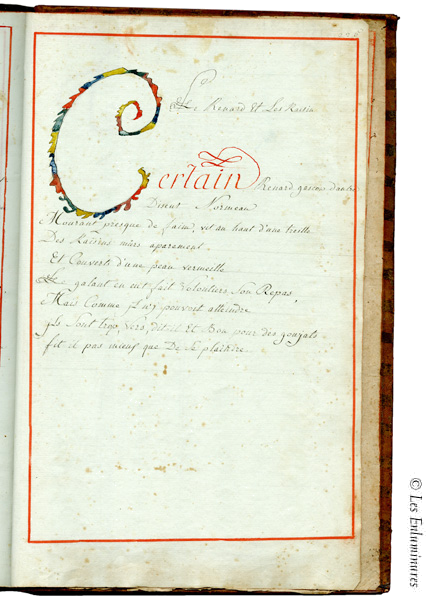 Le Renard Et Les Raisin
Certain Renard gascon d'autre
Disent Normean
Mourant presque de faim, vit au haut d'une treille
Des Raisins mûrs aparament
Et Couverts d'une peau vermeille
Le galant en eut fait Volontiers Son Repas,
Mais Comme il n'y pouvoit atteindre
ils Sont trop verts, dit il Et Bon pour des goujats
fit il pas mieux que De Se plaindre.
© Les Enluminures